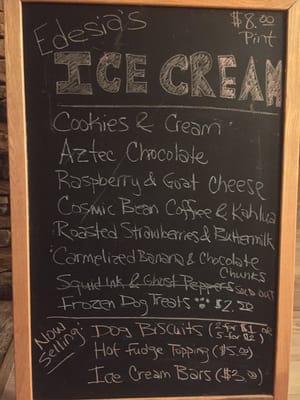 Edesia's
$8.00
Pint
ICE CREAM
Cookies & Cream
Aztec Chocolate
Raspberry & Goat Cheese
Cosmic Bean Coffee & Kahlua
Roasted Strawberries & Buttermilk
Carmelized Banana & Chocolate
Chunks
Squid Ink & Ghost Peppers SOLD OUT
Frozen Dog Treats $2.50
Now
Selling:
Dog Biscuits (2 for $1 or
5 for $2)
Hot Fudge Topping ($5.00)
Ice Cream Bars ($3.00)